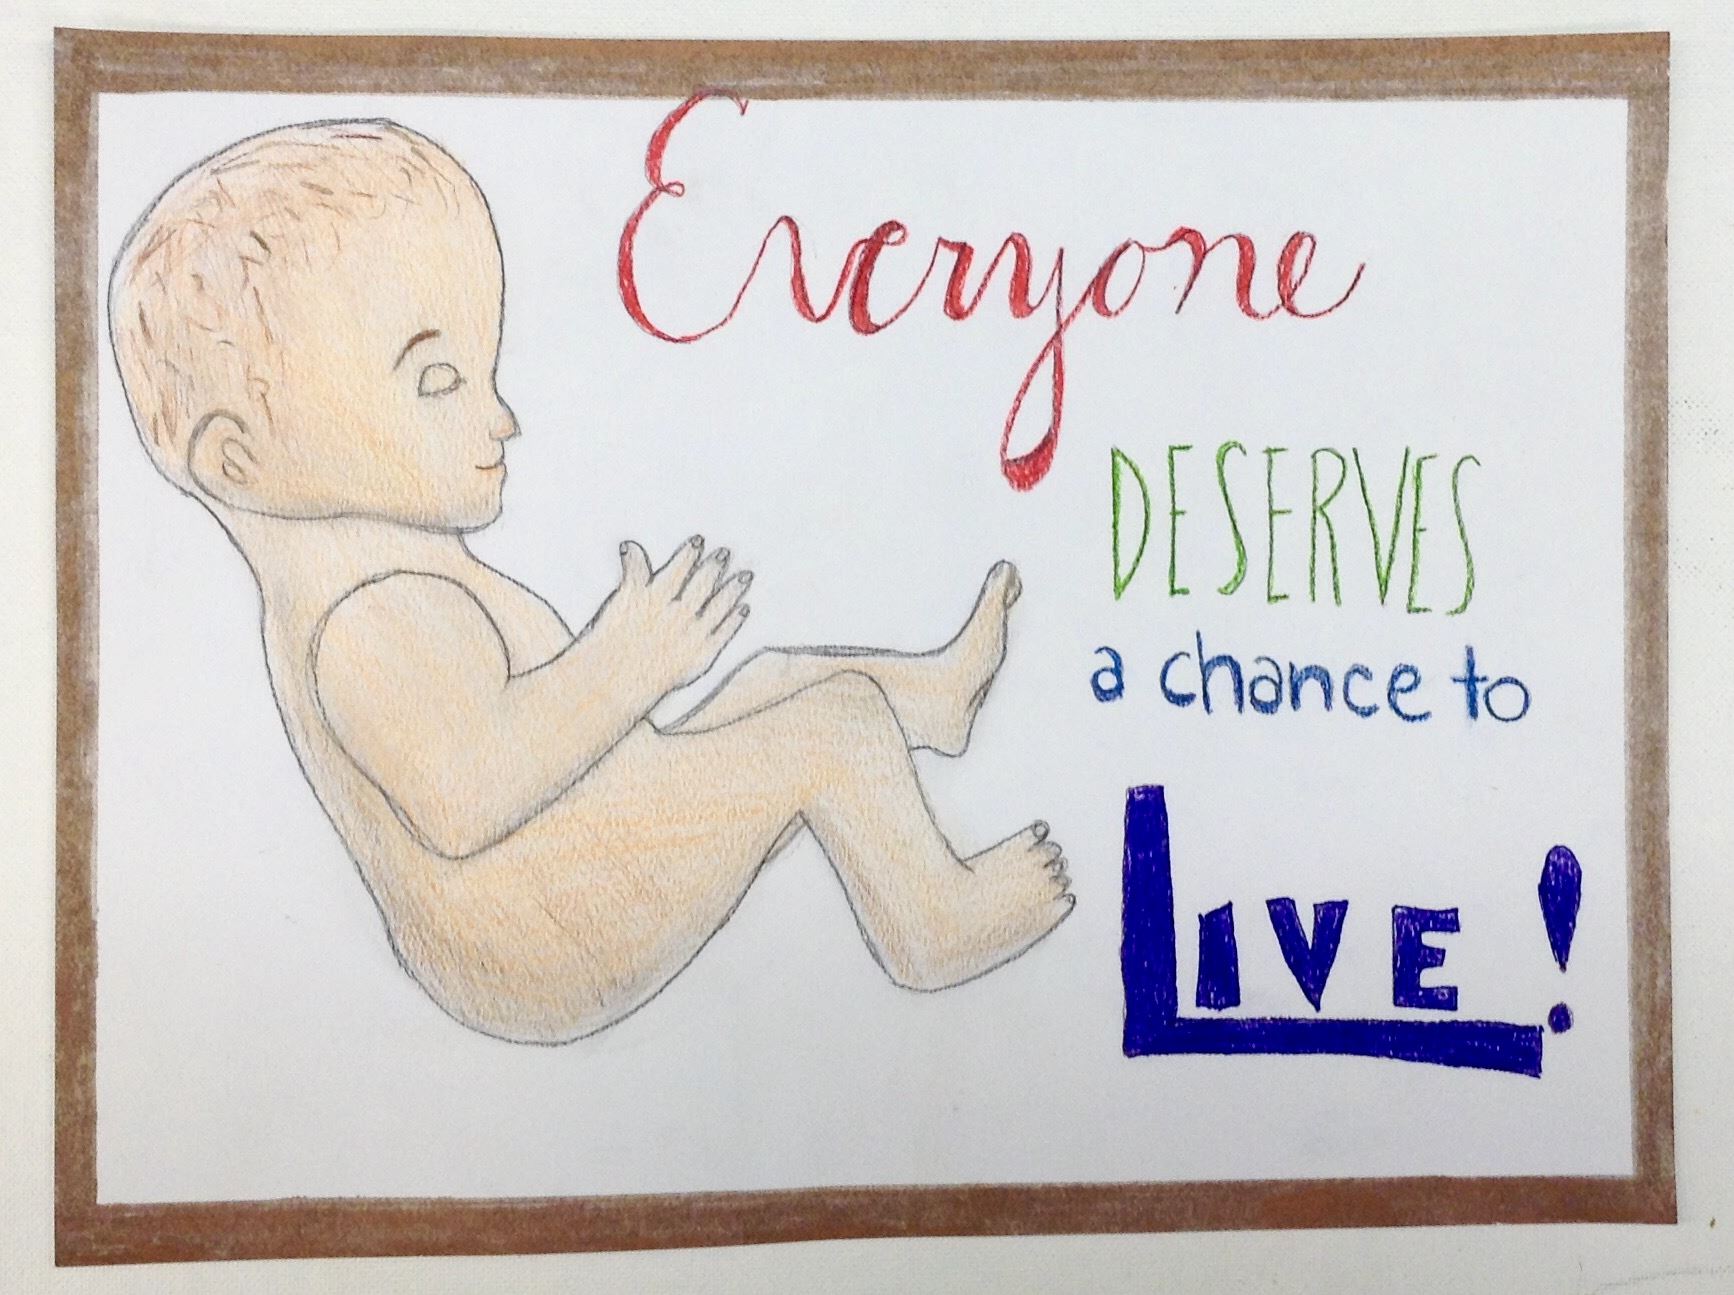 Everyone
DESERVES
a chance to
LIVE!